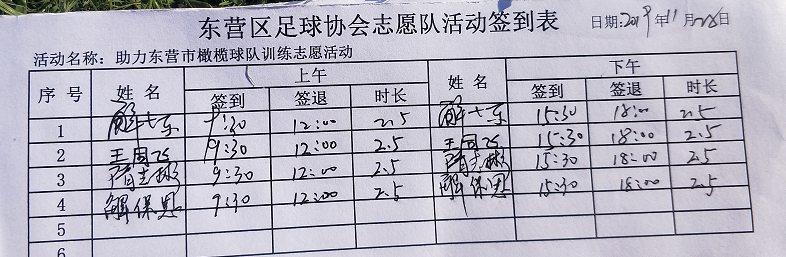 东营区足球协会志愿队活动签到表 日期:2019年11月26日
活动名称：助力东营市橄榄球队训练志愿活动
序号 姓名 上午 姓名 下午
签到 签退 时长 签到 签退 时长
1 解 9:30 12:00 2.5 解 15:30 18:00 2.5
2 王周 9:30 12:00 2.5 王周 15:30 18:00 2.5
3 隋志彬 9:30 12:00 2.5 隋志彬 15:30 18:00 2.5
4 解保恩 9:30 12:00 2.5 解保恩 15:30 18:00 2.5
5
6